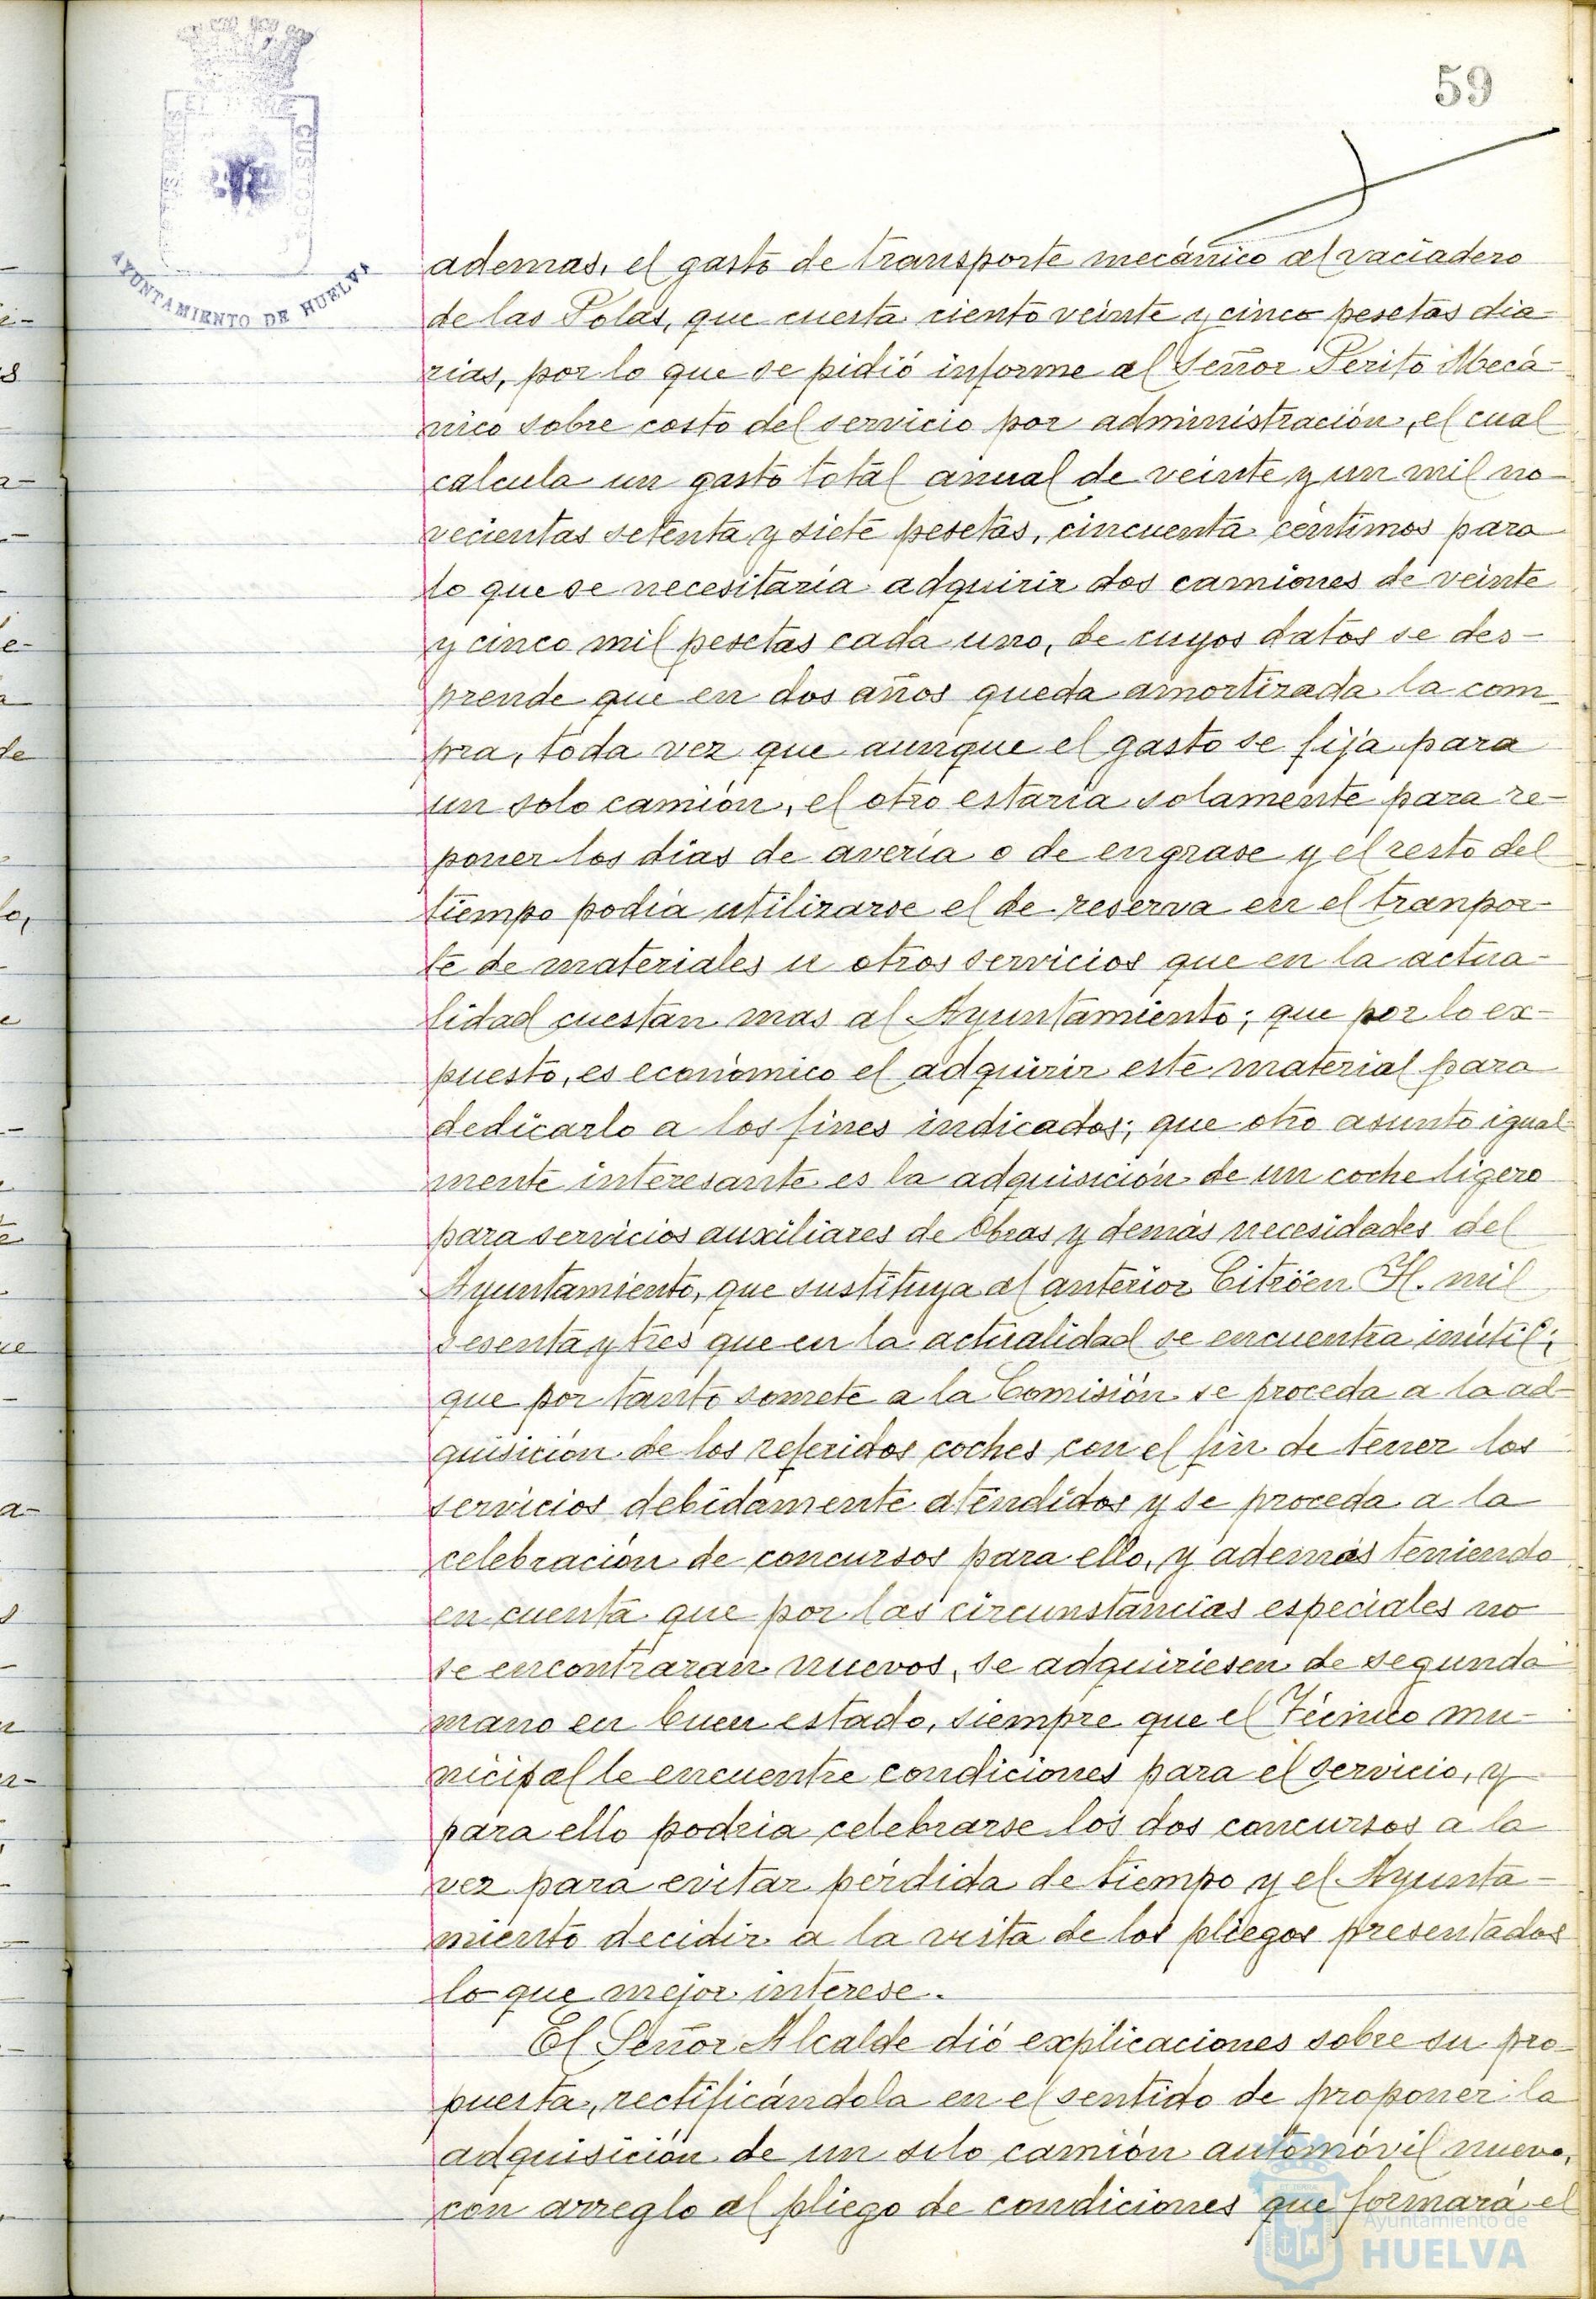 59
AYUNTAMIENTO DE HUELVA
ademas, el gasto de transporte mecánico al vaciadero
de las Polas, que cuesta ciento veinte y cinco pesetas dia-
rias, por lo que se pidió informe al Señor Perito Mecá-
nico sobre costo del servicio por administración, el cual
calcula un gasto total anual de veinte y un mil no-
vecientas setenta y siete pesetas, cincuenta céntimos para
lo que se necesitaría adquirir dos camiones de veinte
y cinco mil pesetas cada uno, de cuyos datos se des-
prende que en dos años queda amortizada la com-
pra, toda vez que aunque el gasto se fija para
un solo camión, el otro estaría solamente para re-
poner los días de avería o de engrase y el resto del
tiempo podía utilizarse el de reserva en el tranpor-
te de materiales u otros servicios que en la actua-
lidad cuestan mas al Ayuntamiento; que por lo ex-
puesto, es económico el adquirir este material para
dedicarlo a los fines indicados; que otro asunto igual-
mente interesante es la adquisición de un coche ligero
para servicios auxiliares de Obras y demás necesidades del
Ayuntamiento, que sustituya al anterior Citröen H. mil
sesenta y tres que en la actualidad se encuentra inútil;
que por tanto somete a la Comisión se proceda a la ad-
quisición de los referidos coches con el fin de tener los
servicios debidamente atendidos y se proceda a la
celebración de concursos para ello, y además teniendo
en cuenta que por las circunstancias especiales no
se encontraran nuevos, se adquiriesen de segunda
mano en buen estado, siempre que el Técnico mu-
nicipal le encuentre condiciones para el servicio, y
para ello podría celebrarse los dos concursos a la
vez para evitar pérdida de tiempo y el Ayunta-
miento decidir a la vista de los pliegos presentados
lo que mejor interese.
El Señor Alcalde dió explicaciones sobre su pro-
puesta, rectificándola en el sentido de proponer la
adquisición de un solo camión automóvil nuevo,
con arreglo al pliego de condiciones que formará el
Ayuntamiento de
HUELVA